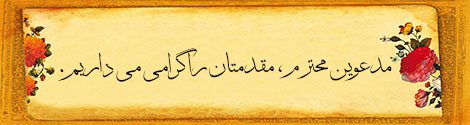 مدعوین محترم، مقدمتان را گرامی می داریم.